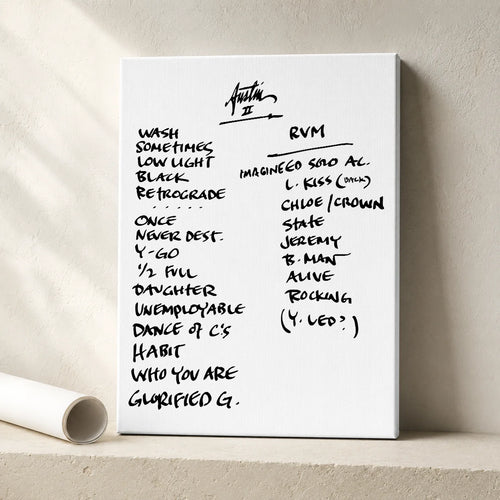 Austin
II
WASH
SOMETIMES
LOW LIGHT
BLACK
RETROGRADE
. . . . .
ONCE
NEVER DEST.
Y-GO
1/2 FULL
DAUGHTER
UNEMPLOYABLE
DANCE of C's
HABIT
WHO YOU ARE
GLORIFIED G.
RVM
IMAGINE ED SOLO AC.
L. KISS (BACK)
CHLOE / CROWN
STATE
JEREMY
B. MAN
ALIVE
ROCKING
(Y. LED?)